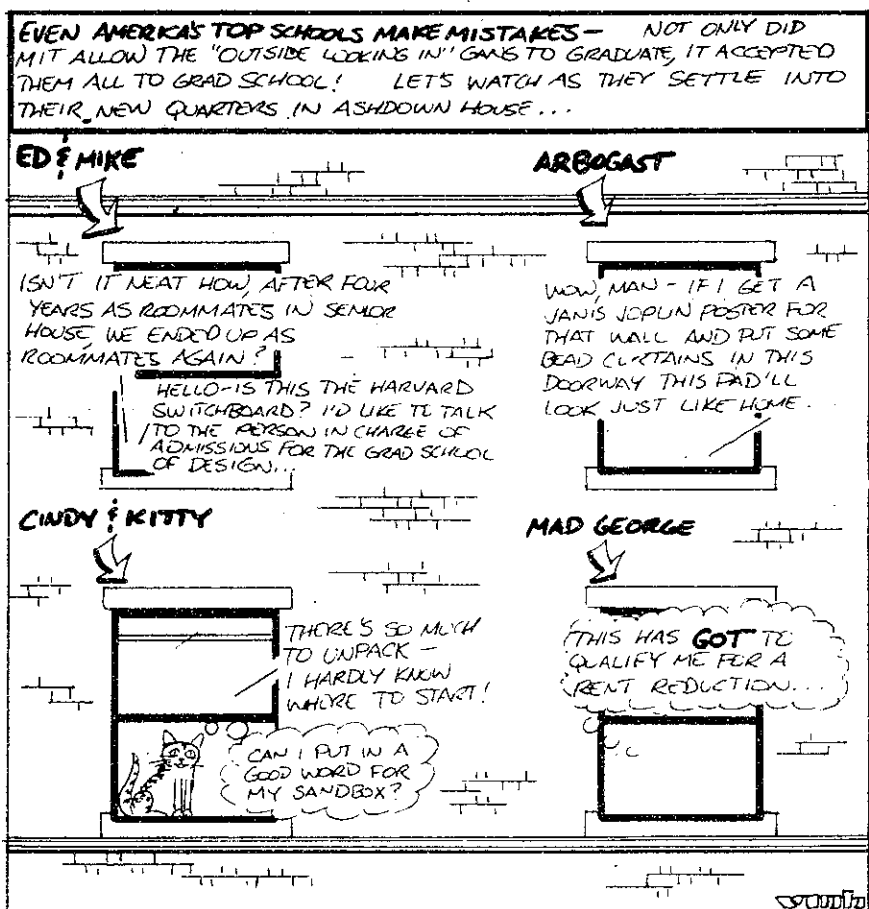 EVEN AMERICA'S TOP SCHOOLS MAKE MISTAKES — NOT ONLY DID
MIT ALLOW THE "OUTSIDE LOOKING IN" GANG TO GRADUATE, IT ACCEPTED
THEM ALL TO GRAD SCHOOL! LET'S WATCH AS THEY SETTLE INTO
THEIR NEW QUARTERS IN ASHDOWN HOUSE...
ED & MIKE
ISN'T IT NEAT HOW, AFTER FOUR
YEARS AS ROOMMATES IN SENIOR
HOUSE, WE ENDED UP AS
ROOMMATES AGAIN?
HELLO - IS THIS THE HARVARD
SWITCHBOARD? I'D LIKE TO TALK
TO THE PERSON IN CHARGE OF
ADMISSIONS FOR THE GRAD SCHOOL
OF DESIGN...
ARBOGAST
WOW, MAN - IF I GET A
JANIS JOPLIN POSTER FOR
THAT WALL AND PUT SOME
BEAD CURTAINS IN THIS
DOORWAY THIS PAD'LL
LOOK JUST LIKE HOME.
CINDY & KITTY
THERE'S SO MUCH
TO UNPACK -
I HARDLY KNOW
WHERE TO START!
CAN I PUT IN A
GOOD WORD FOR
MY SANDBOX?
MAD GEORGE
THIS HAS GOT TO
QUALIFY ME FOR A
RENT REDUCTION...